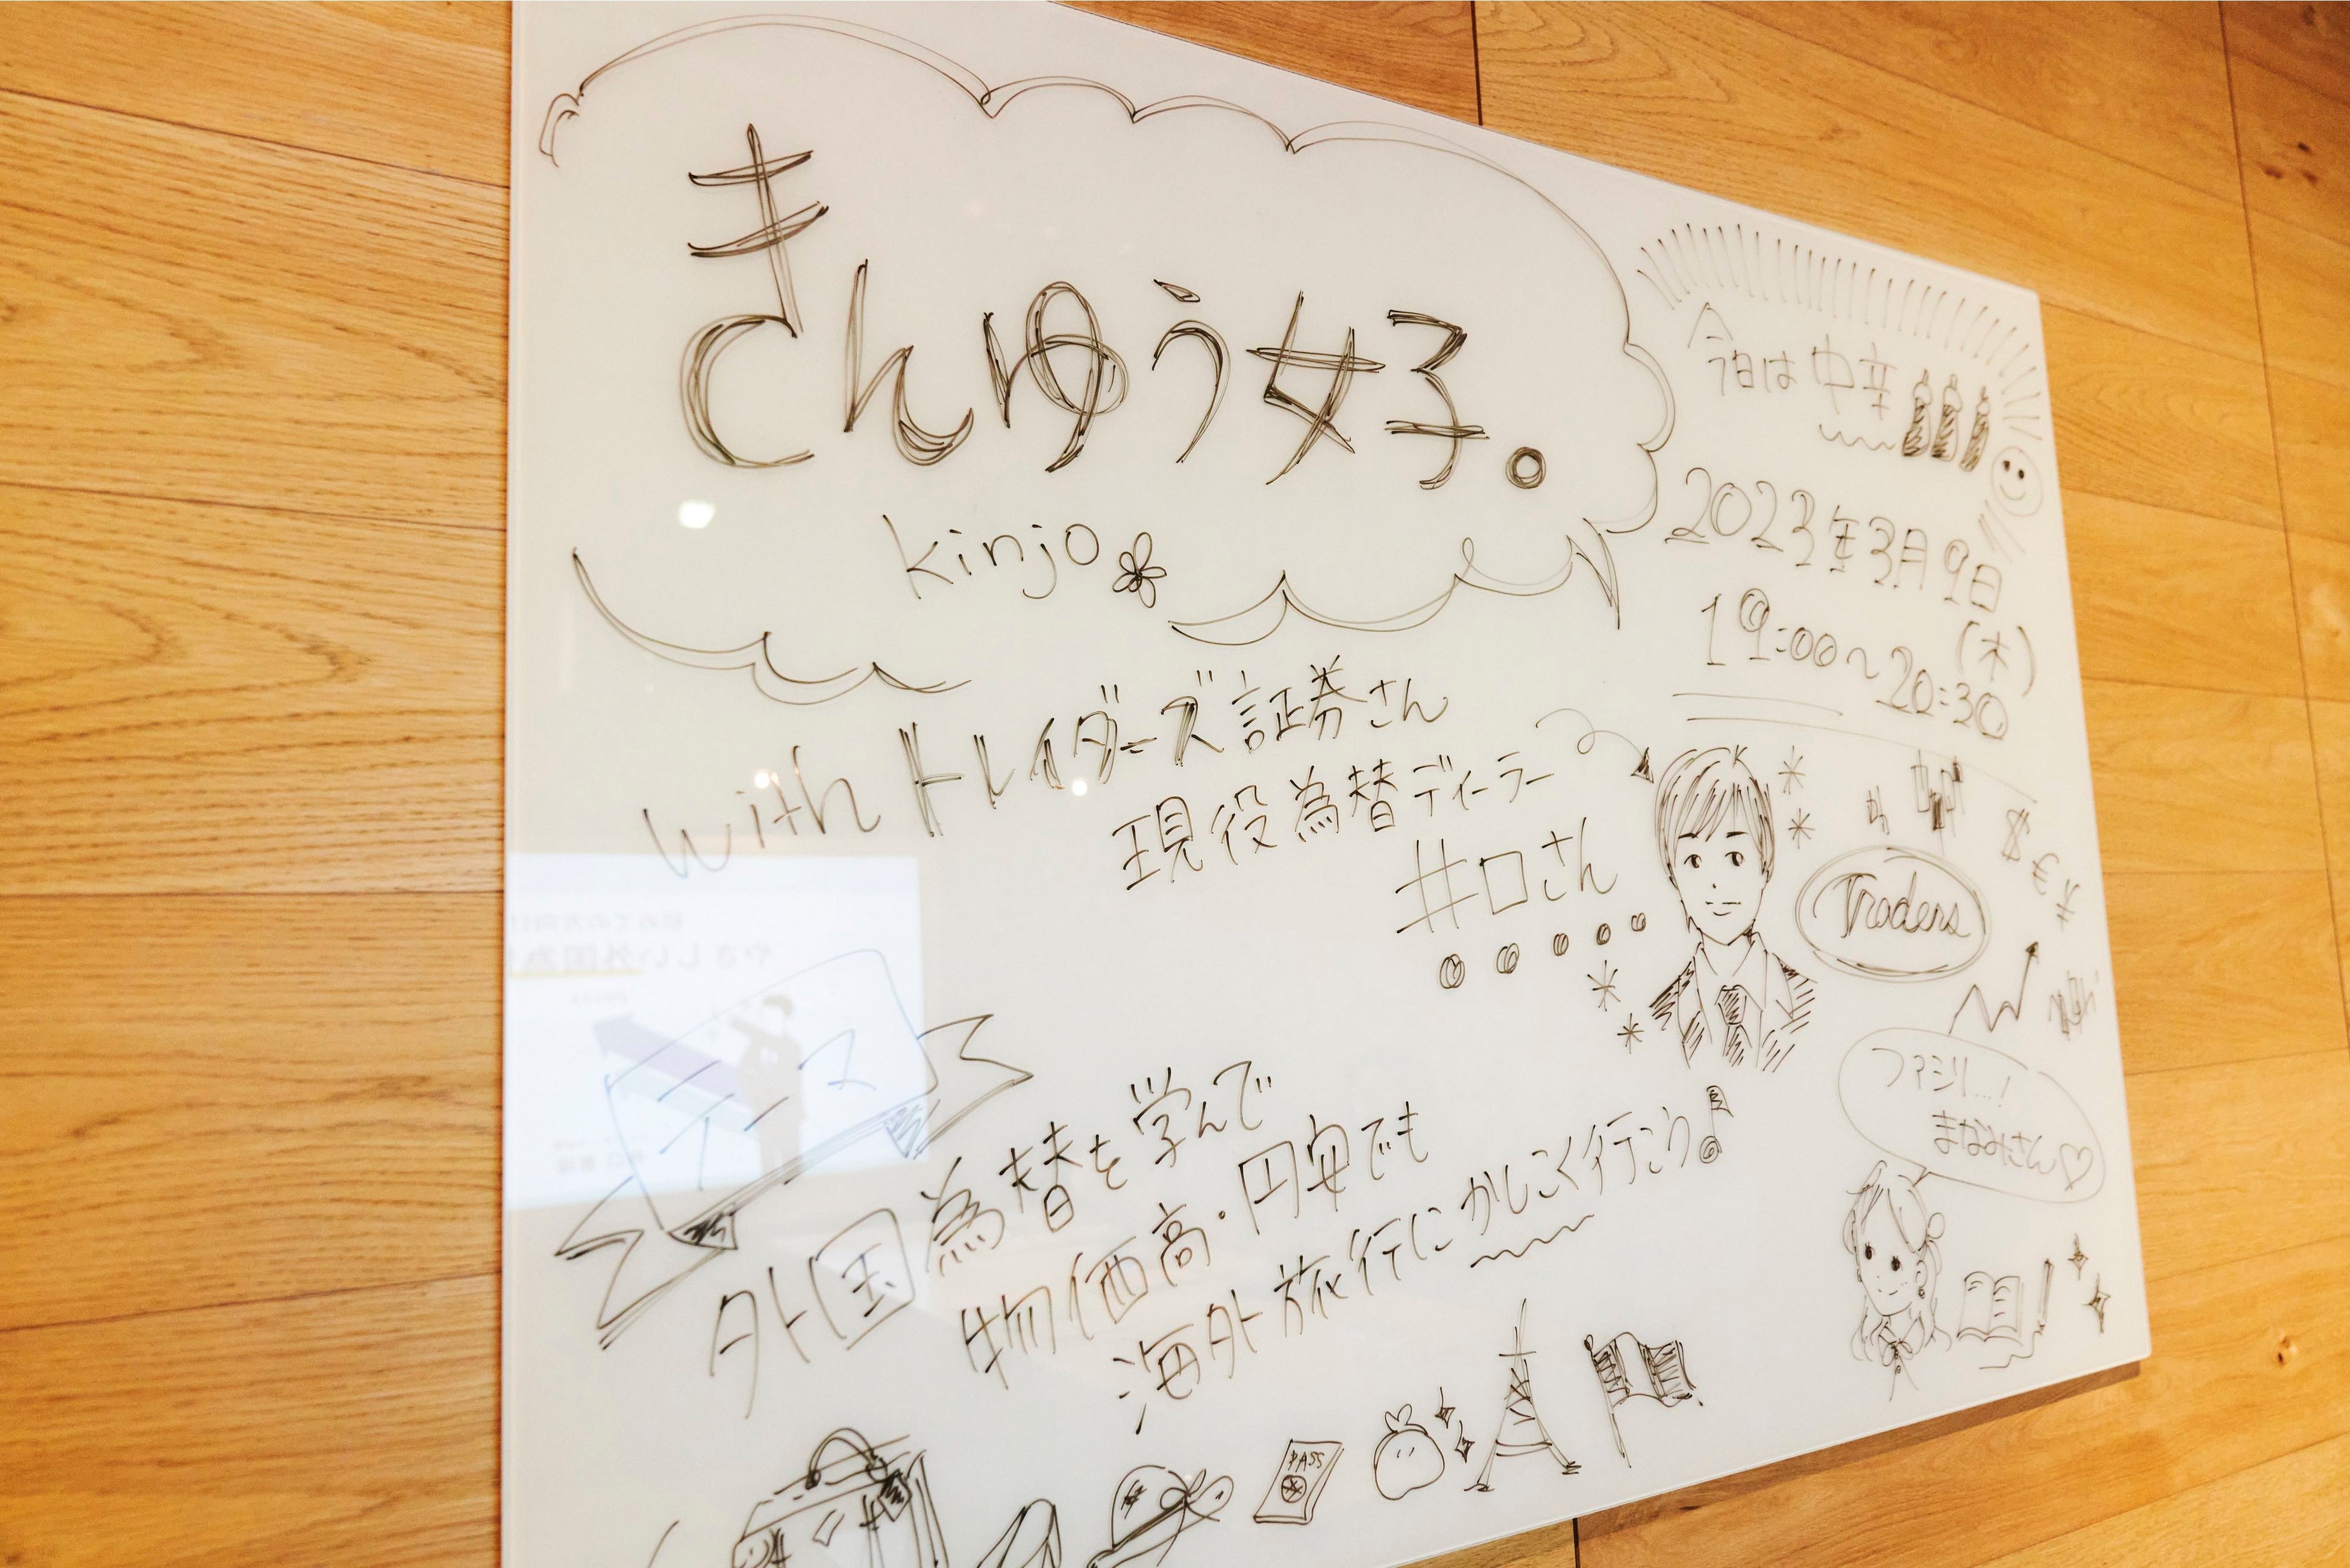 きんゆう女子。
kinjo
with トレイダーズ証券さん
現役為替ディーラー
井口さん
テーマ
外国為替を学んで
物価高・円安でも
海外旅行にかしこく行こう♪
PASS
今日は中辛
2023年3月9日
(木)
19:00〜20:30
$
Traders
ファシリ…!
まなみさん♡